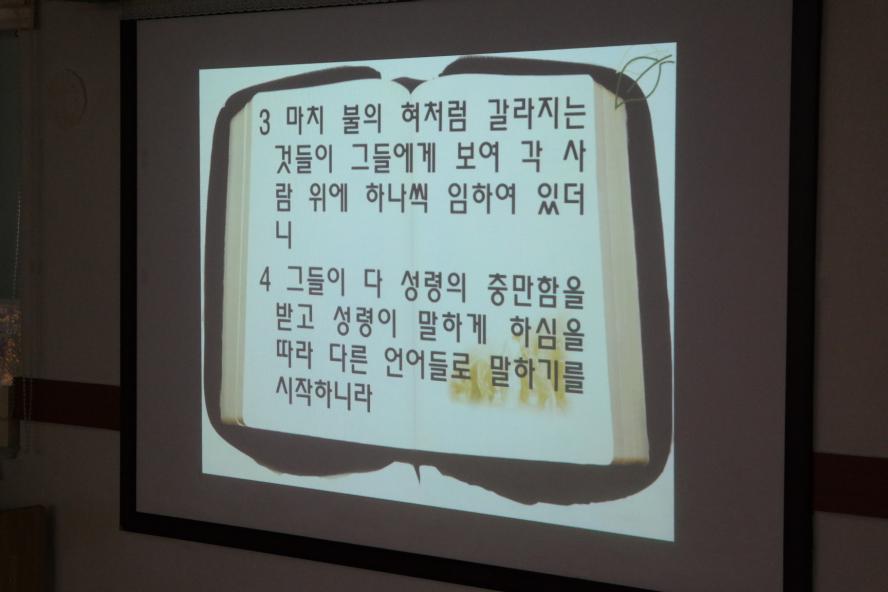 3 마치 불의 혀처럼 갈라지는
것들이 그들에게 보여 각 사
람 위에 하나씩 임하여 있더
니
4 그들이 다 성령의 충만함을
받고 성령이 말하게 하심을
따라 다른 언어들로 말하기를
시작하니라